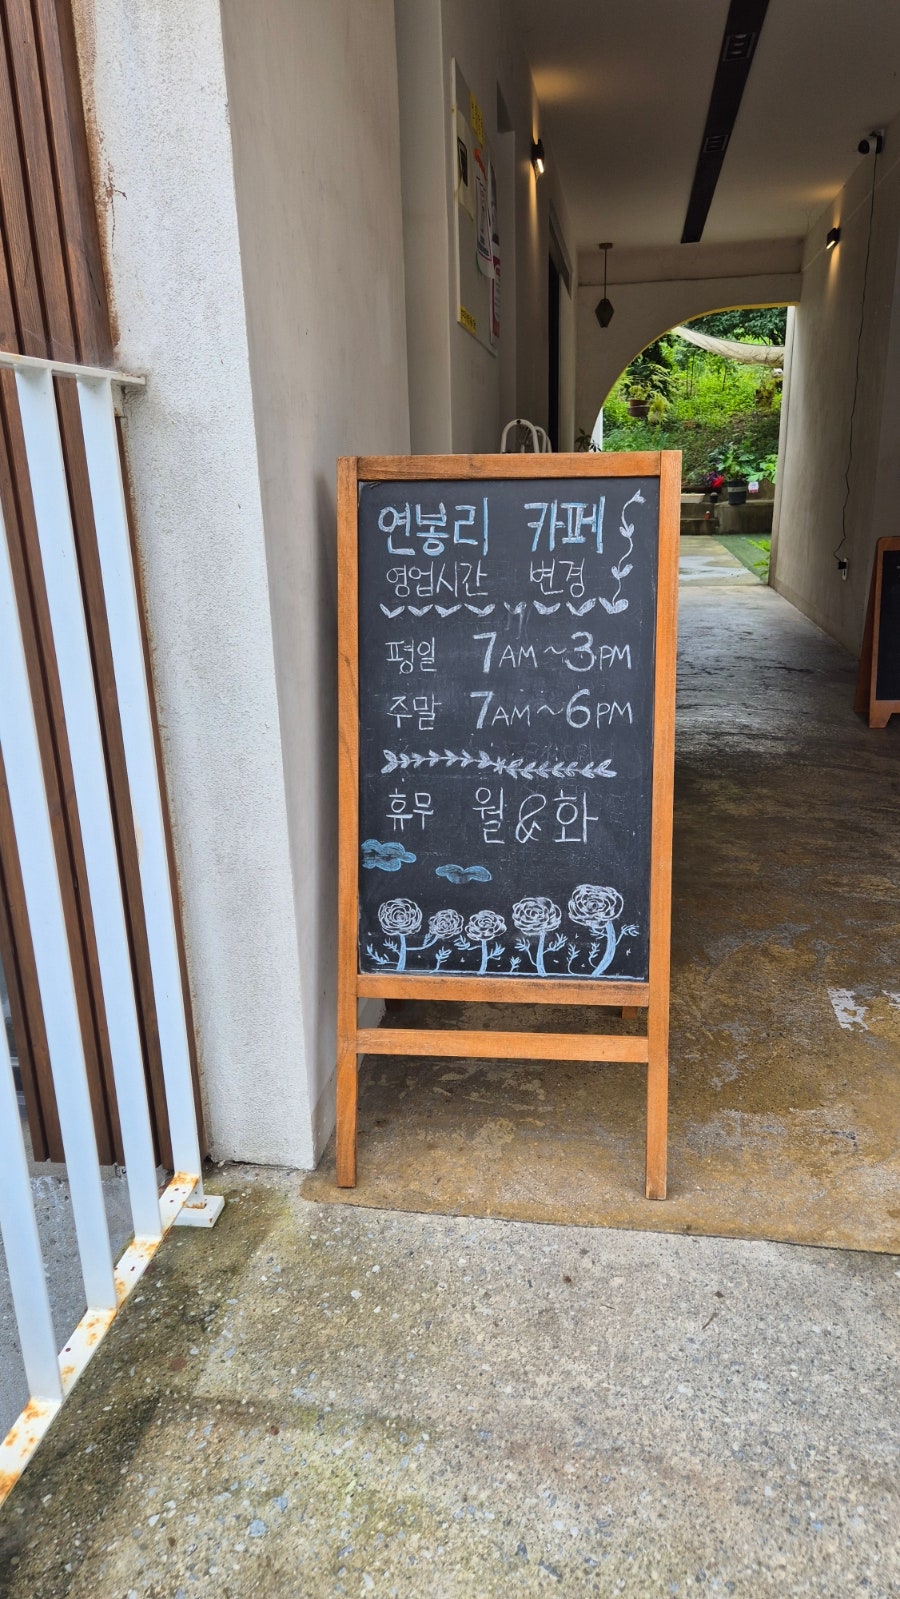 연봉리 카페
영업시간 변경
평일 7AM~3PM
주말 7AM~6PM
휴무 월&화